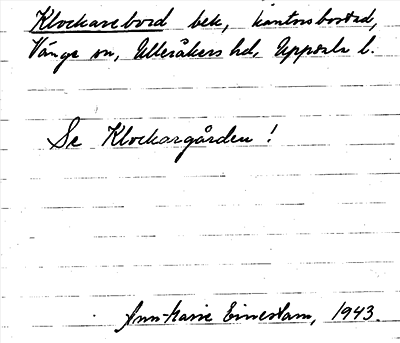 Klockarebord bek, kantorsbostad,
Vänge sn, Ulleråkers hd, Uppsala l.
Se Klockargården!
Ann-Marie Einestam, 1943.